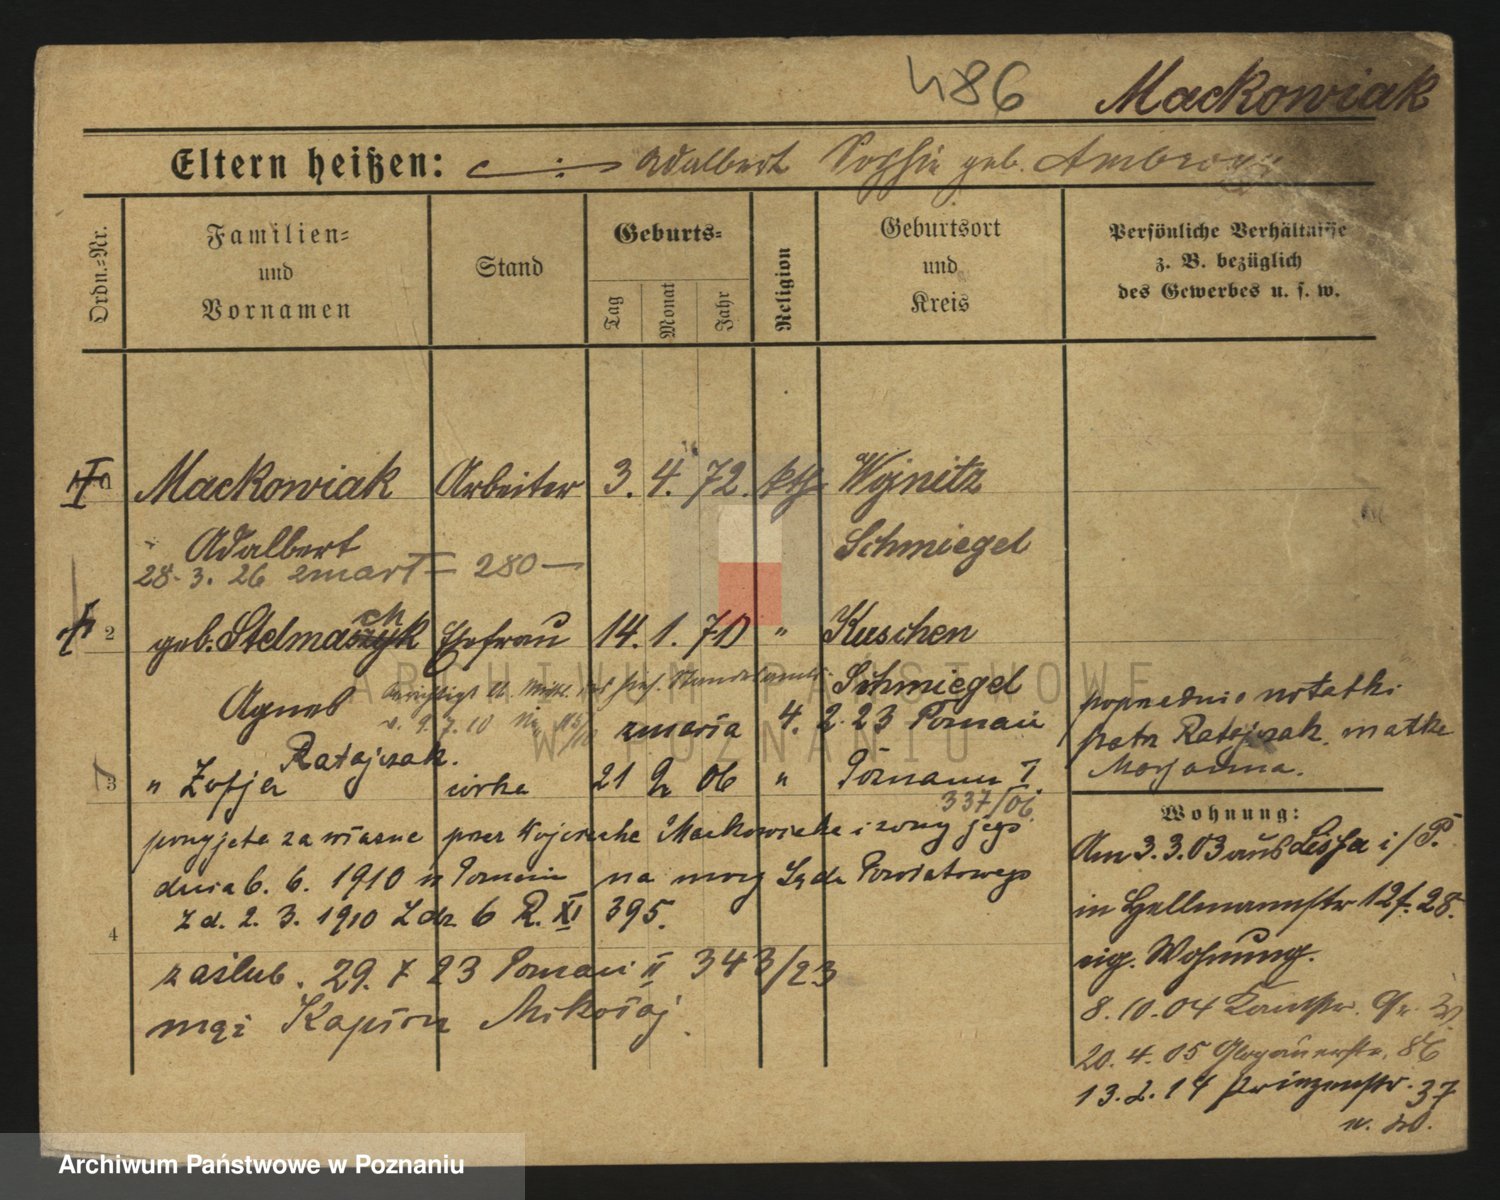 486 Mackowiak
Eltern heißen: Adalbert Sophie geb. Ambrozy
Ordn.=Nr.
Familien=
und
Vornamen
Stand
Geburts=
Tag
Monat
Jahr
Religion
Geburtsort
und
Kreis
Persönliche Verhältnisse
z. B. bezüglich
des Gewerbes u. s. w.
Mackowiak Arbeiter 3. 4. 72. kth Wojnitz
Adalbert Schmiegel
28. 3. 26 zmarł 280
2 geb. Stelmaszyk ch Ehefrau 14. 1. 70 " Kuschen
Agnes Schmiegel
Berichtigt lt. Mittl. des hies. Standesamts
v. 9.7.10
zmarła 4. 2. 23 Poznań
Ratajczak.
3 " Zofja córka 21 2 06 " Poznań
337/06.
przyjęta za własne przez Wojciecha Mackowiaka i żony jego
dnia 6. 6. 1910 w Poznaniu na mocy Sądu Powiatowego
z d. 2. 3. 1910 6 R. XI 395.
4
zaślub. 29. 7 23 Poznań II 343/23
mąż Kapłon Mikołaj.
poprzednie notatki
patrz Ratajczak, matka
Marjanna.
Wohnung:
Am 3.3.03 aus Lissa i/P.
in Hellmannstr 12 f. 28.
eig. Wohnung.
8. 10. 04
20. 4. 05 Glogauerstr. 86
13. 2. 14 Prinzenstr. 37
ARCHIWUM PAŃSTWOWE
W POZNANIU
Archiwum Państwowe w Poznaniu